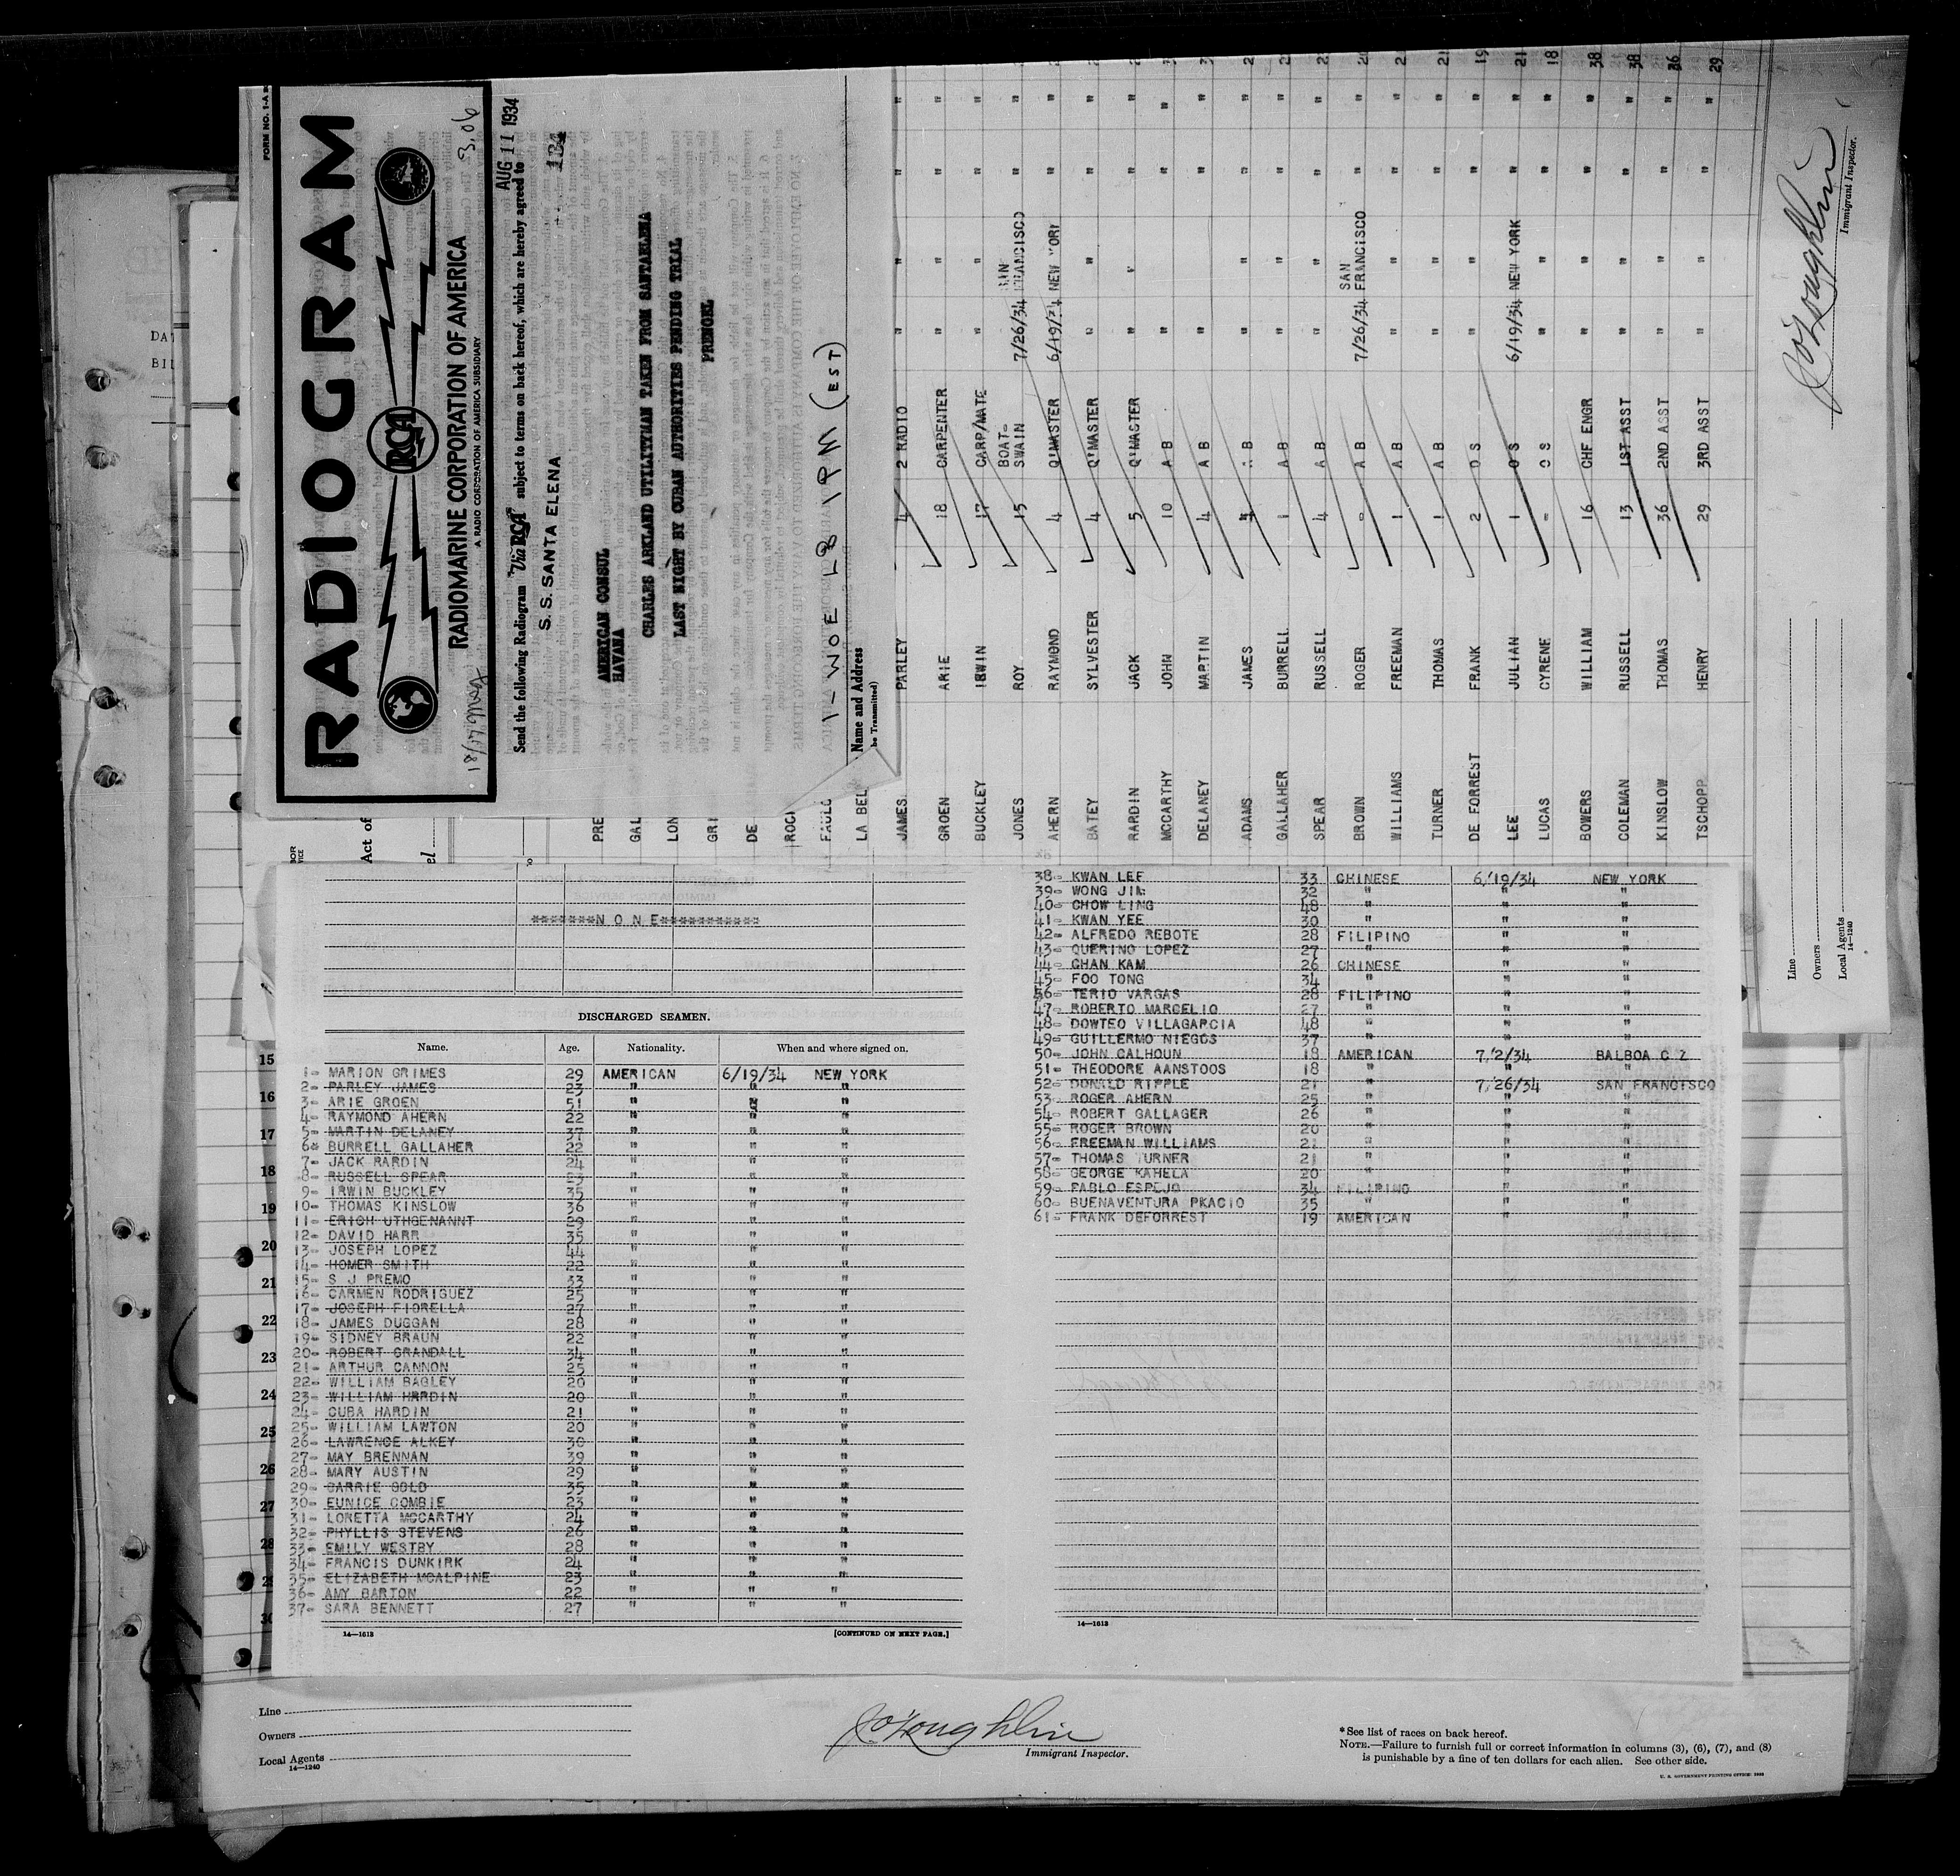 FORM NO. 1-A
RADIOGRAM
RCA
RADIOMARINE CORPORATION OF AMERICA
A RADIO CORPORATION OF AMERICA SUBSIDIARY
3.06
AUG 11 1934
Send the following Radiogram "Via RCA" subject to terms on back hereof, which are hereby agreed to
S. S. SANTA ELENA
AMERICAN CONSUL
HAVANA
CHARLES ARKLAND UTILITYMAN TAKEN FROM SANTAELENA
LAST NIGHT BY CUBAN AUTHORITIES PENDING TRIAL
PRENGEL
1- WOE LB 1PM (EST)
Name and Address
be Transmitted)
LA BEL
JAMES PARLEY 4 2 RADIO " " " "
GROEN ARIE 18 CARPENTER " " " "
BUCKLEY IRWIN 17 CARP/MATE " " " "
JONES ROY 15 BOAT-SWAIN 7/26/34 SAN FRANCISCO " "
AHERN RAYMOND 4 Q'MASTER 6/19/34 NEW YORK " "
BATEY SYLVESTER 4 Q'MASTER " " " "
RARDIN JACK 5 Q'MASTER " " " "
MCCARTHY JOHN 10 A B " " "
DELANEY MARTIN 4 A B " " "
ADAMS JAMES 4 A B " " " "
GALLAHER BURRELL 1 A B " " " "
SPEAR RUSSELL 4 A B " " " "
BROWN ROGER A B 7/26/34 SAN FRANCISCO " " 20
WILLIAMS FREEMAN 1 A B " " " "
TURNER THOMAS 1 A B " " " " 21
DE FORREST FRANK 2 O S " " " " 19
LEE JULIAN 1 O S 6/19/34 NEW YORK " " 21
LUCAS CYRENE - O S " " " " 18
BOWERS WILLIAM 16 CHF ENGR " " " " 38
COLEMAN RUSSELL 13 1ST ASST " " " " 38
KINSLOW THOMAS 36 2ND ASST " " " " 36
TSCHOPP HENRY 29 3RD ASST " " " " 29
Immigrant Inspector.
Line
Owners
Local Agents
14—1240
Act of
*******N O N E***********
DISCHARGED SEAMEN.
Name. Age. Nationality. When and where signed on.
1- MARION GRIMES 29 AMERICAN 6/19/34 NEW YORK
2- PARLEY JAMES 23 " " "
3- ARIE GROEN 51 " " "
4- RAYMOND AHERN 22 " " "
5- MARTIN DELANEY 37 " " "
6- BURRELL GALLAHER 22 " " "
7- JACK RARDIN 24 " " "
8- RUSSELL SPEAR 23 " " "
9- IRWIN BUCKLEY 35 " " "
10- THOMAS KINSLOW 36 " " "
11- ERICH UTHGENANNT 29 " " "
12- DAVID HARR 35 " " "
13- JOSEPH LOPEZ 44 " " "
14- HOMER SMITH 22 " " "
15- S J PREMO 33 " " "
16- CARMEN RODRIGUEZ 25 " " "
17- JOSEPH FIORELLA 27 " " "
18- JAMES DUGGAN 28 " " "
19- SIDNEY BRAUN 22 " " "
20- ROBERT CRANDALL 34 " " "
21- ARTHUR CANNON 25 " " "
22- WILLIAM BAGLEY 20 " " "
23- WILLIAM HARDIN 20 " " "
24- CUBA HARDIN 21 " " "
25- WILLIAM LAWTON 20 " " "
26- LAWRENCE ALKEY 30 " " "
27- MAY BRENNAN 39 " " "
28- MARY AUSTIN 29 " " "
29- CARRIE GOLD 35 " " "
30- EUNICE COMBIE 23 " " "
31- LORETTA MCCARTHY 24 " " "
32- PHYLLIS STEVENS 26 " " "
33- EMILY WESTBY 28 " " "
34- FRANCIS DUNKIRK 24 " " "
35- ELIZABETH MCALPINE 23 " " "
36- AMY BARTON 22 " " "
37- SARA BENNETT 27 " " "
14—1613
[CONTINUED ON NEXT PAGE.]
38- KWAN LEE 33 CHINESE 6/19/34 NEW YORK
39- WONG JIM 32 " " "
40- CHOW LING 48 " " "
41- KWAN YEE 30 " " "
42- ALFREDO REBOTE 28 FILIPINO " "
43- QUERINO LOPEZ 27 " " "
44- CHAN KAM 26 CHINESE " "
45- FOO TONG 34 " " "
46- TERIO VARGAS 28 FILIPINO " "
47- ROBERTO MARCELIO 27 " " "
48- DOWTEO VILLAGARCIA 48 " " "
49- GUILLERMO NIEGOS 37 " " "
50- JOHN CALHOUN 18 AMERICAN 7/2/34 BALBOA C Z
51- THEODORE AANSTOOS 18 " " "
52- DONALD RIPPLE 21 " 7/26/34 SAN FRANCISCO
53- ROGER AHERN 25 " " "
54- ROBERT GALLAGER 26 " " "
55- ROGER BROWN 20 " " "
56- FREEMAN WILLIAMS 21 " " "
57- THOMAS TURNER 21 " " "
58- GEORGE KAHELA 20 " " "
59- PABLO ESPEJO 34 FILIPINO " "
60- BUENAVENTURA PKACIO 35 " " "
61- FRANK DEFORREST 19 AMERICAN " "
14—1613
15
16
17
18
19
20
21
22
23
24
25
26
27
28
Line
Owners
Local Agents
14—1240
J O'Loughlin
Immigrant Inspector.
*See list of races on back hereof.
NOTE.—Failure to furnish full or correct information in columns (3), (6), (7), and (8)
is punishable by a fine of ten dollars for each alien. See other side.